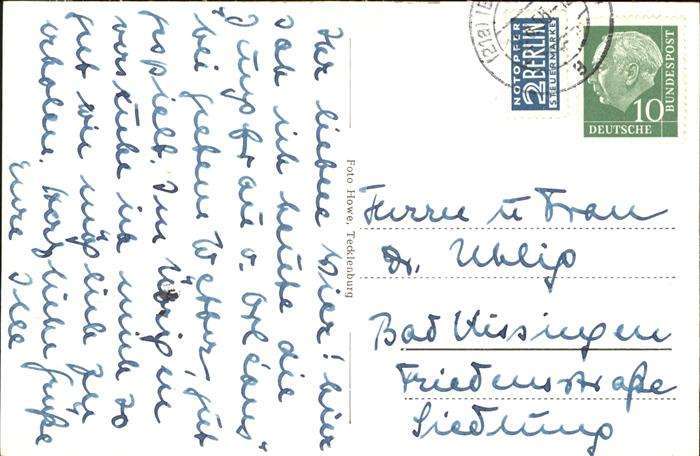 Ihr lieben Vier! hier
sah ich heute die
"Jungfrau v. Orleans"
bei gutem Wetter, gut
gespielt. Im übrigen
versuche ich mich so
gut wie möglich zu
erholen. Herzliche Grüße
Eure Ilse
Foto Howe, Tecklenburg
NOTOPFER
2 BERLIN
STEUERMARKE
10
DEUTSCHE
BUNDESPOST
Herrn u Frau
Dr. Uhlig
Bad Kissingen
Friedensstraße
Siedlung